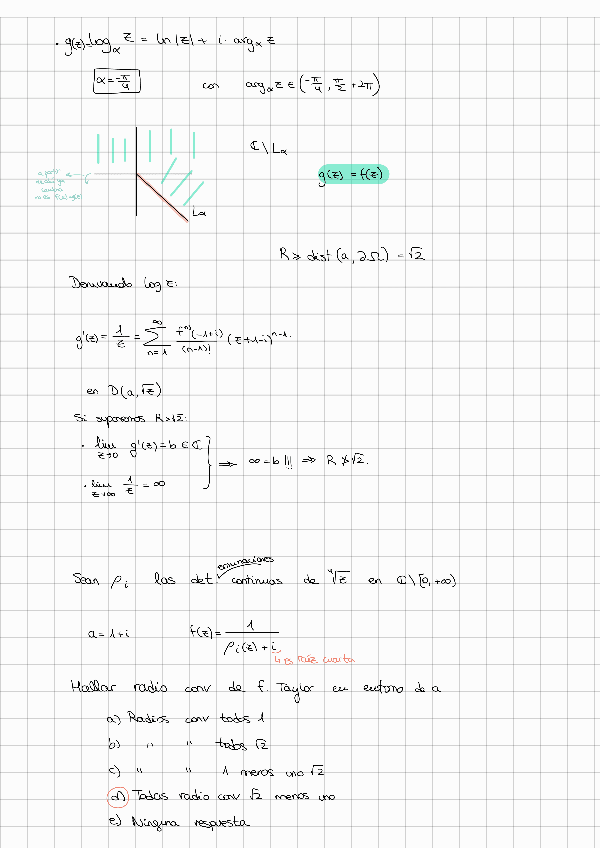 · g(z) = log_α z = ln|z| + i · arg_α z
α = -π/4 con arg_α z ∈ (-π/4, π/2 + 2π)
ℂ \ L_α
g(z) = f(z)
L_α
R ≥ dist (a, ∂Ω) = √2
Derivando log z:
g'(z) = 1/z = ∑_{n=1}^{∞} f^{n)}(-1+i)/(n-1)! (z+1-i)^{n-1}.
en D(a, √2)
Si suponemos R>√2:
· lim_{z→0} g'(z) = b ∈ ℂ
⟹ ∞ = b !!! ⟹ R ≯ √2.
· lim_{z→∞} 1/z = ∞
enumeraciones
Sean ρ_i las det. continuas de ⁴√z en ℂ\[0, +∞)
a = 1+i f(z) = 1/(ρ_i(z) + i)
raíz cuarta
Hallar radio conv de f. Taylor en entorno de a
a) Radios conv todos 1
b) " " todos √2
c) " " 1 menos uno √2
d) Todas radio conv √2 menos uno
e) Ninguna respuesta